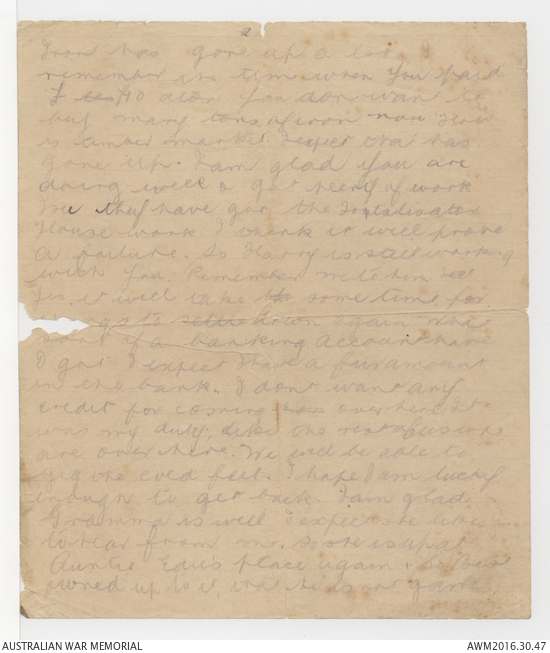 2
Iron has gone up a lot. I
remember the time when you paid
£10 a ton. You don't want to
buy many tons of iron now. How
is timber market I expect that has
gone up. I am glad you are
doing well & got plenty of work
I see they have got the Totalisator
House work. I think it will prove
a failure. So Harry is still working
with you. Remember me to him
Yes, it will take some time for
things to settle down again. What
sort of a banking account have
I got I expect I have a fair amount
in the bank. I dont want any
credit for coming over here It
was my duty, like the rest of us who
are over here. We will be able to
the cold feet. I hope I am lucky
enough to get back. I am glad
Gramma is well I expect she likes
to hear from me. So she is up at
Auntie Edie's place again &
owned up to it, that he is not game
AUSTRALIAN WAR MEMORIAL
AWM2016.30.47